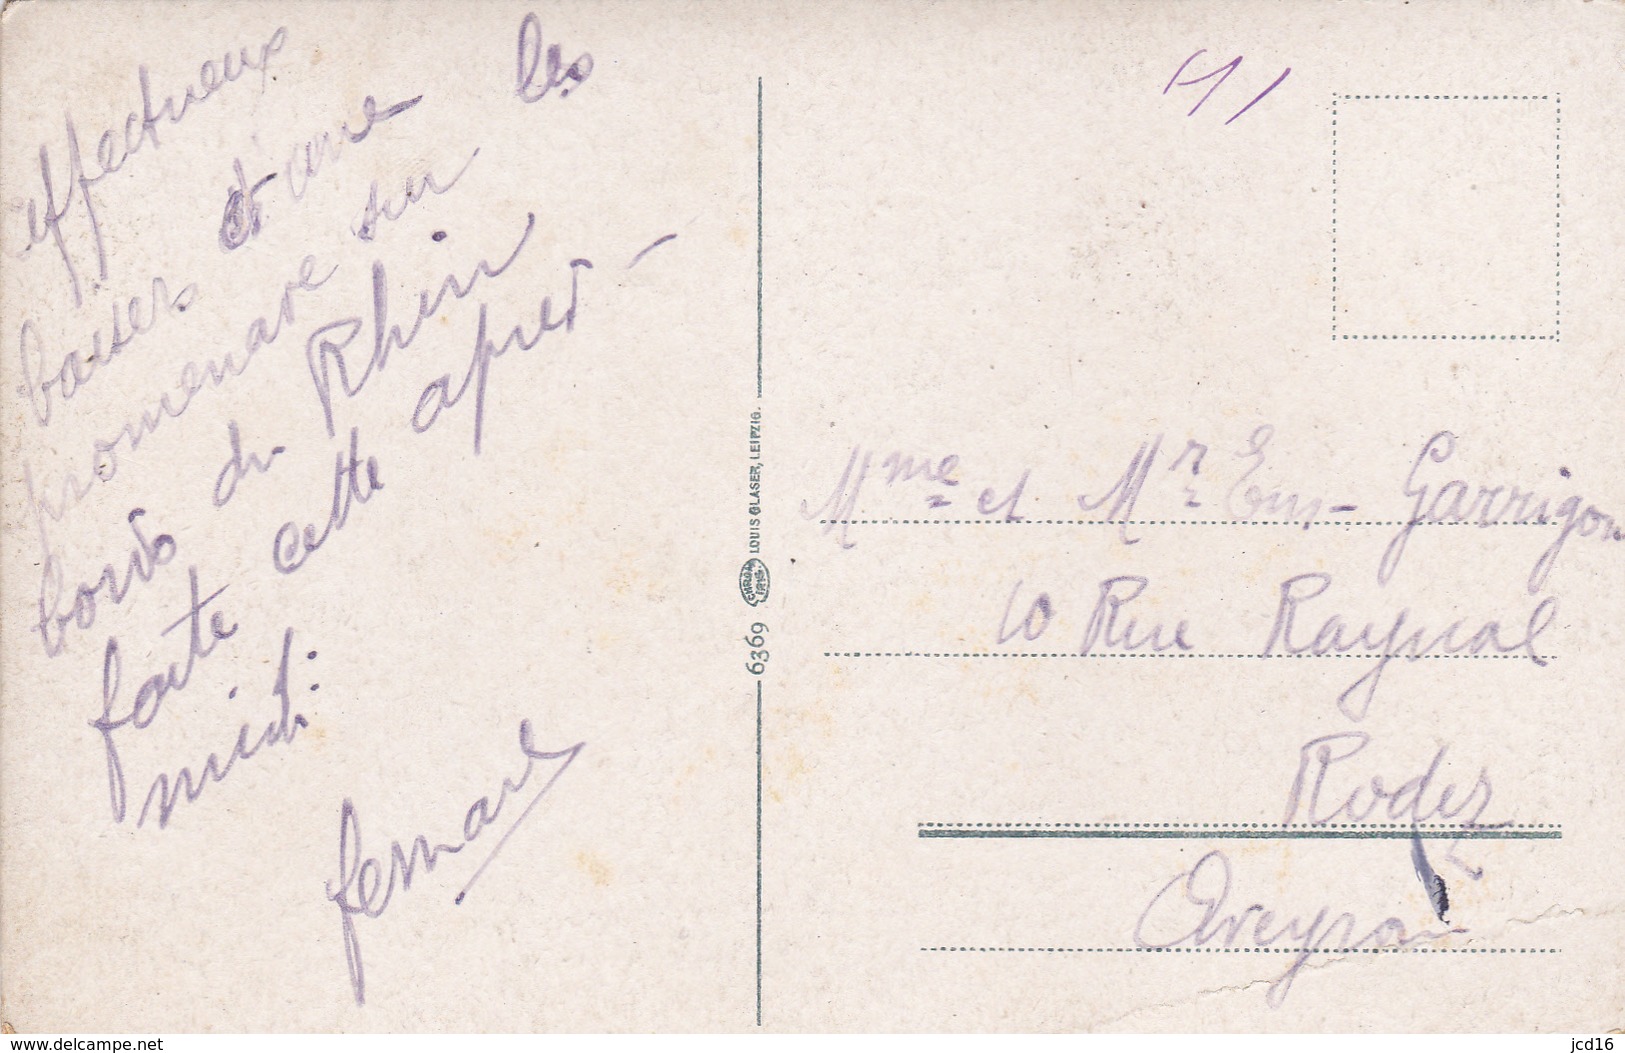 effectueux
baisers d'une
promenade sur les
bords du Rhin
faite cette après -
midi.
fernand
6369 CHROM IRIS. LOUIS GLASER, LEIPZIG.
41
Mme et Mr Garrigou
10 Rue Raynal
Rodez
Aveyron
www.delcampe.net
jcd16